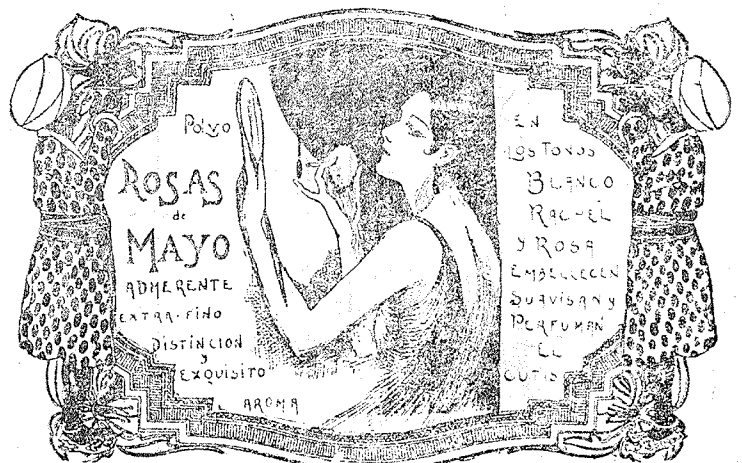 Polvo
ROSAS
de
MAYO
ADHERENTE
EXTRA-FINO
DISTINCION
y
EXQUISITO
AROMA
EN
LOS TONOS
BLANCO
RACHEL
Y ROSA
EMBELLECEN
SUAVISAN y
PERFUMAN
EL
CUTIS